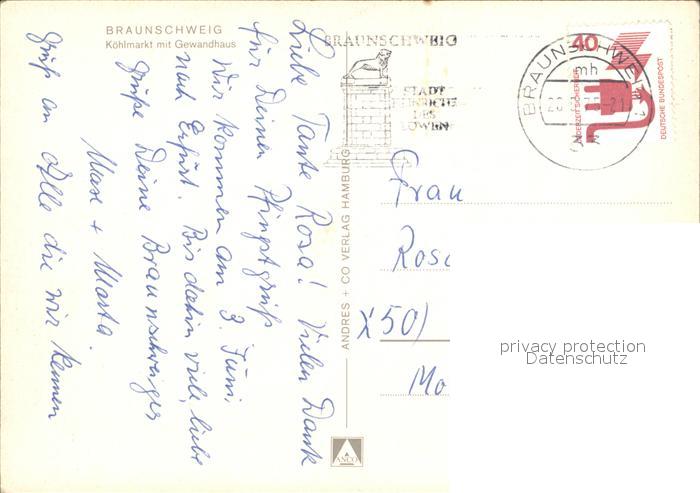 BRAUNSCHWEIG
Köhlmarkt mit Gewandhaus
Liebe Tante Rosa! Vielen Dank
für Deinen Pfingstgruß
Wir kommen am 3. Juni
nach Erfurt. Bis dahin viele liebe
Grüße Deine Braunschweiger
Max + Marta.
Gruß an Alle die wir kennen
ANDRES + CO VERLAG HAMBURG
ANCO
BRAUNSCHWEIG
STADT
HEINRICHS
DES
LÖWEN
BRAUNSCHWEIG
mh
40
JEDERZEIT SICHERHEIT
DEUTSCHE BUNDESPOST
Frau
Rosa
X50)
Mo
privacy protection
Datenschutz